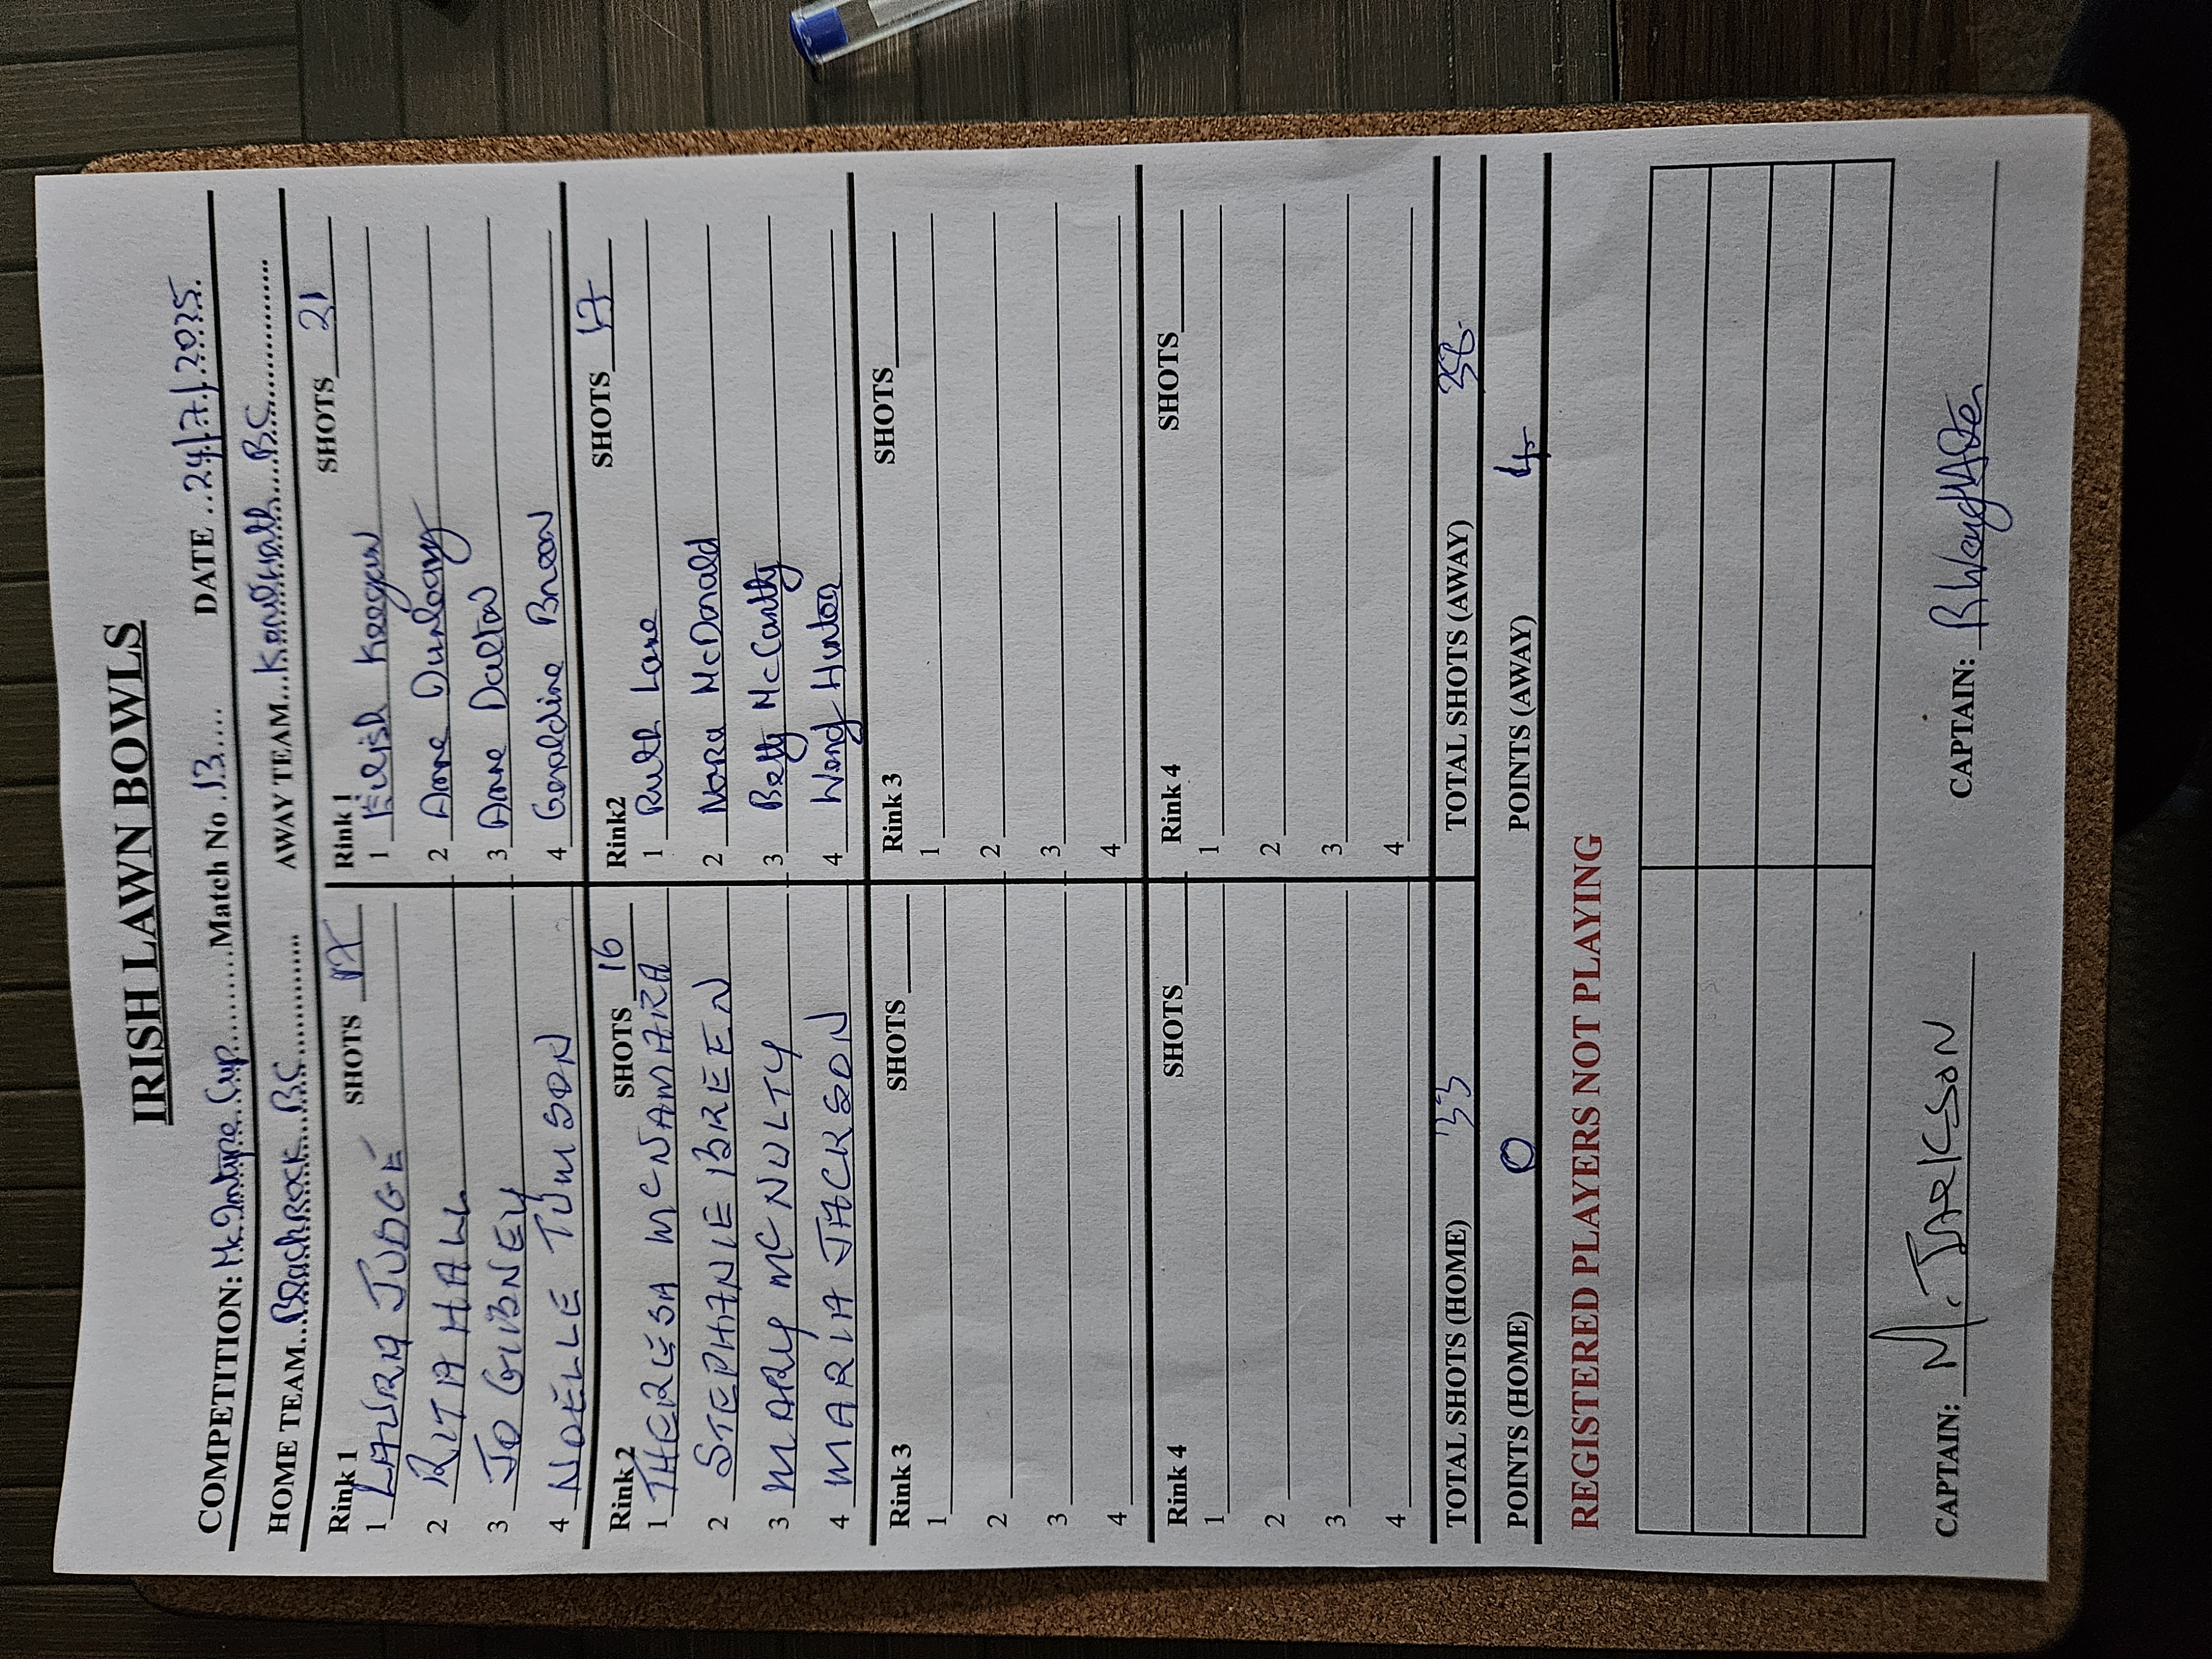 IRISH LAWN BOWLS
COMPETITION: McIntyre Cup Match No 13 DATE 24/7/2025
HOME TEAM Blackrock BC AWAY TEAM Kenilworth BC
Rink 1 SHOTS 17 Rink 1 SHOTS 21
1 LAURA JUDGE 1 Eilish Keegan
2 RITA HALL 2 Anne Dunleavy
3 JO GIBNEY 3 Anne Dalton
4 NOELLE TUMSON 4 Geraldine Breen
Rink 2 SHOTS 16 Rink2 SHOTS 17
1 THERESA MCNAMARA 1 Ruth Lane
2 STEPHANIE BREEN 2 Nora McDonald
3 MARY MCNULTY 3 Betty McCarthy
4 MARIA JACKSON 4 Wendy Hunter
Rink 3 SHOTS Rink 3 SHOTS
1 1
2 2
3 3
4 4
Rink 4 SHOTS Rink 4 SHOTS
1 1
2 2
3 3
4 4
TOTAL SHOTS (HOME) 33 TOTAL SHOTS (AWAY) 38
POINTS (HOME) 0 POINTS (AWAY) 4
REGISTERED PLAYERS NOT PLAYING
CAPTAIN: M. JACKSON CAPTAIN: